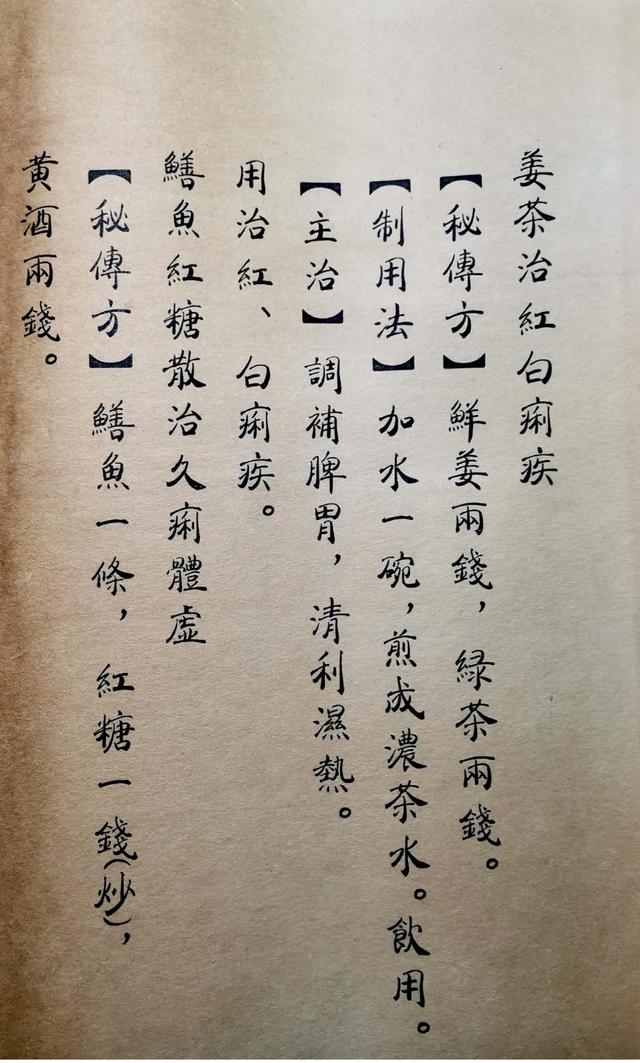 姜茶治紅白痢疾
【秘傳方】鮮姜兩錢，緑茶兩錢。
【制用法】加水一碗，煎成濃茶水。飲用。
【主治】調補脾胃，清利濕熱。
用治紅、白痢疾。
鱔魚紅糖散治久痢體虛
【秘傳方】鱔魚一條，紅糖一錢(炒)，
黄酒兩錢。